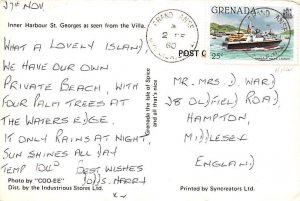 27th NOV.
Inner Harbour St. Georges as seen from the Villa.
WHAT A LOVELY ISLAND
WE HAVE OUR OWN
PRIVATE BEACH, WITH
FOUR PALM TREES AT
THE WATERS EDGE.
IT ONLY RAINS AT NIGHT,
SUN SHINES ALL DAY
TEMP BEST WISHES
HARRY
Photo by "COO-EE"
Dist. by the Industrious Stores Ltd.
Grenada the Isle of Spice
and all that's nice
POST C
GRAND ANSE
25c
MR. MRS D. WARD
28 OLDFIELD ROAD
HAMPTON,
MIDDLESEX
ENGLAND
Printed by Syncreators Ltd.